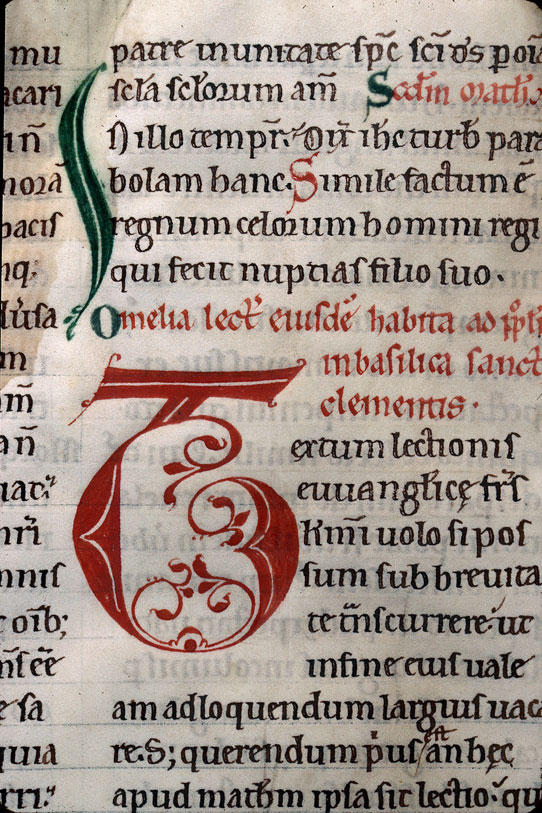 mu
acari
in̄
norā
pacis
nq;
lusa
m
am̄
an̄
iac̄
nr̄i
nnis
oīb;
n̄s ēē
e sa
quia
rri.
patre in unitate sp̄c sc̄i d̄s p oīa
sc̄la sc̄lorum am̄ Scd̄m math̄.
In illo tempr̄. Dix̄ ih̄c turb̄ para
bolam hanc. Simile factum ē
regnum celorum homini regi
qui fecit nuptias filio suo.
Omelia lect̄ eiusdē habita ad pp̄l̄
in basilica sanct
clementis.
Textum lectionis
euuangl̄icę fr̄s
k̄mi uolo si pos
sum sub breuita
te t̄nscurrere ut
in fine eius uale
am ad loquendum largius uaca
re. S; querendum p̄us est an hęc
apud math̄m ipsa sit lectio. qu